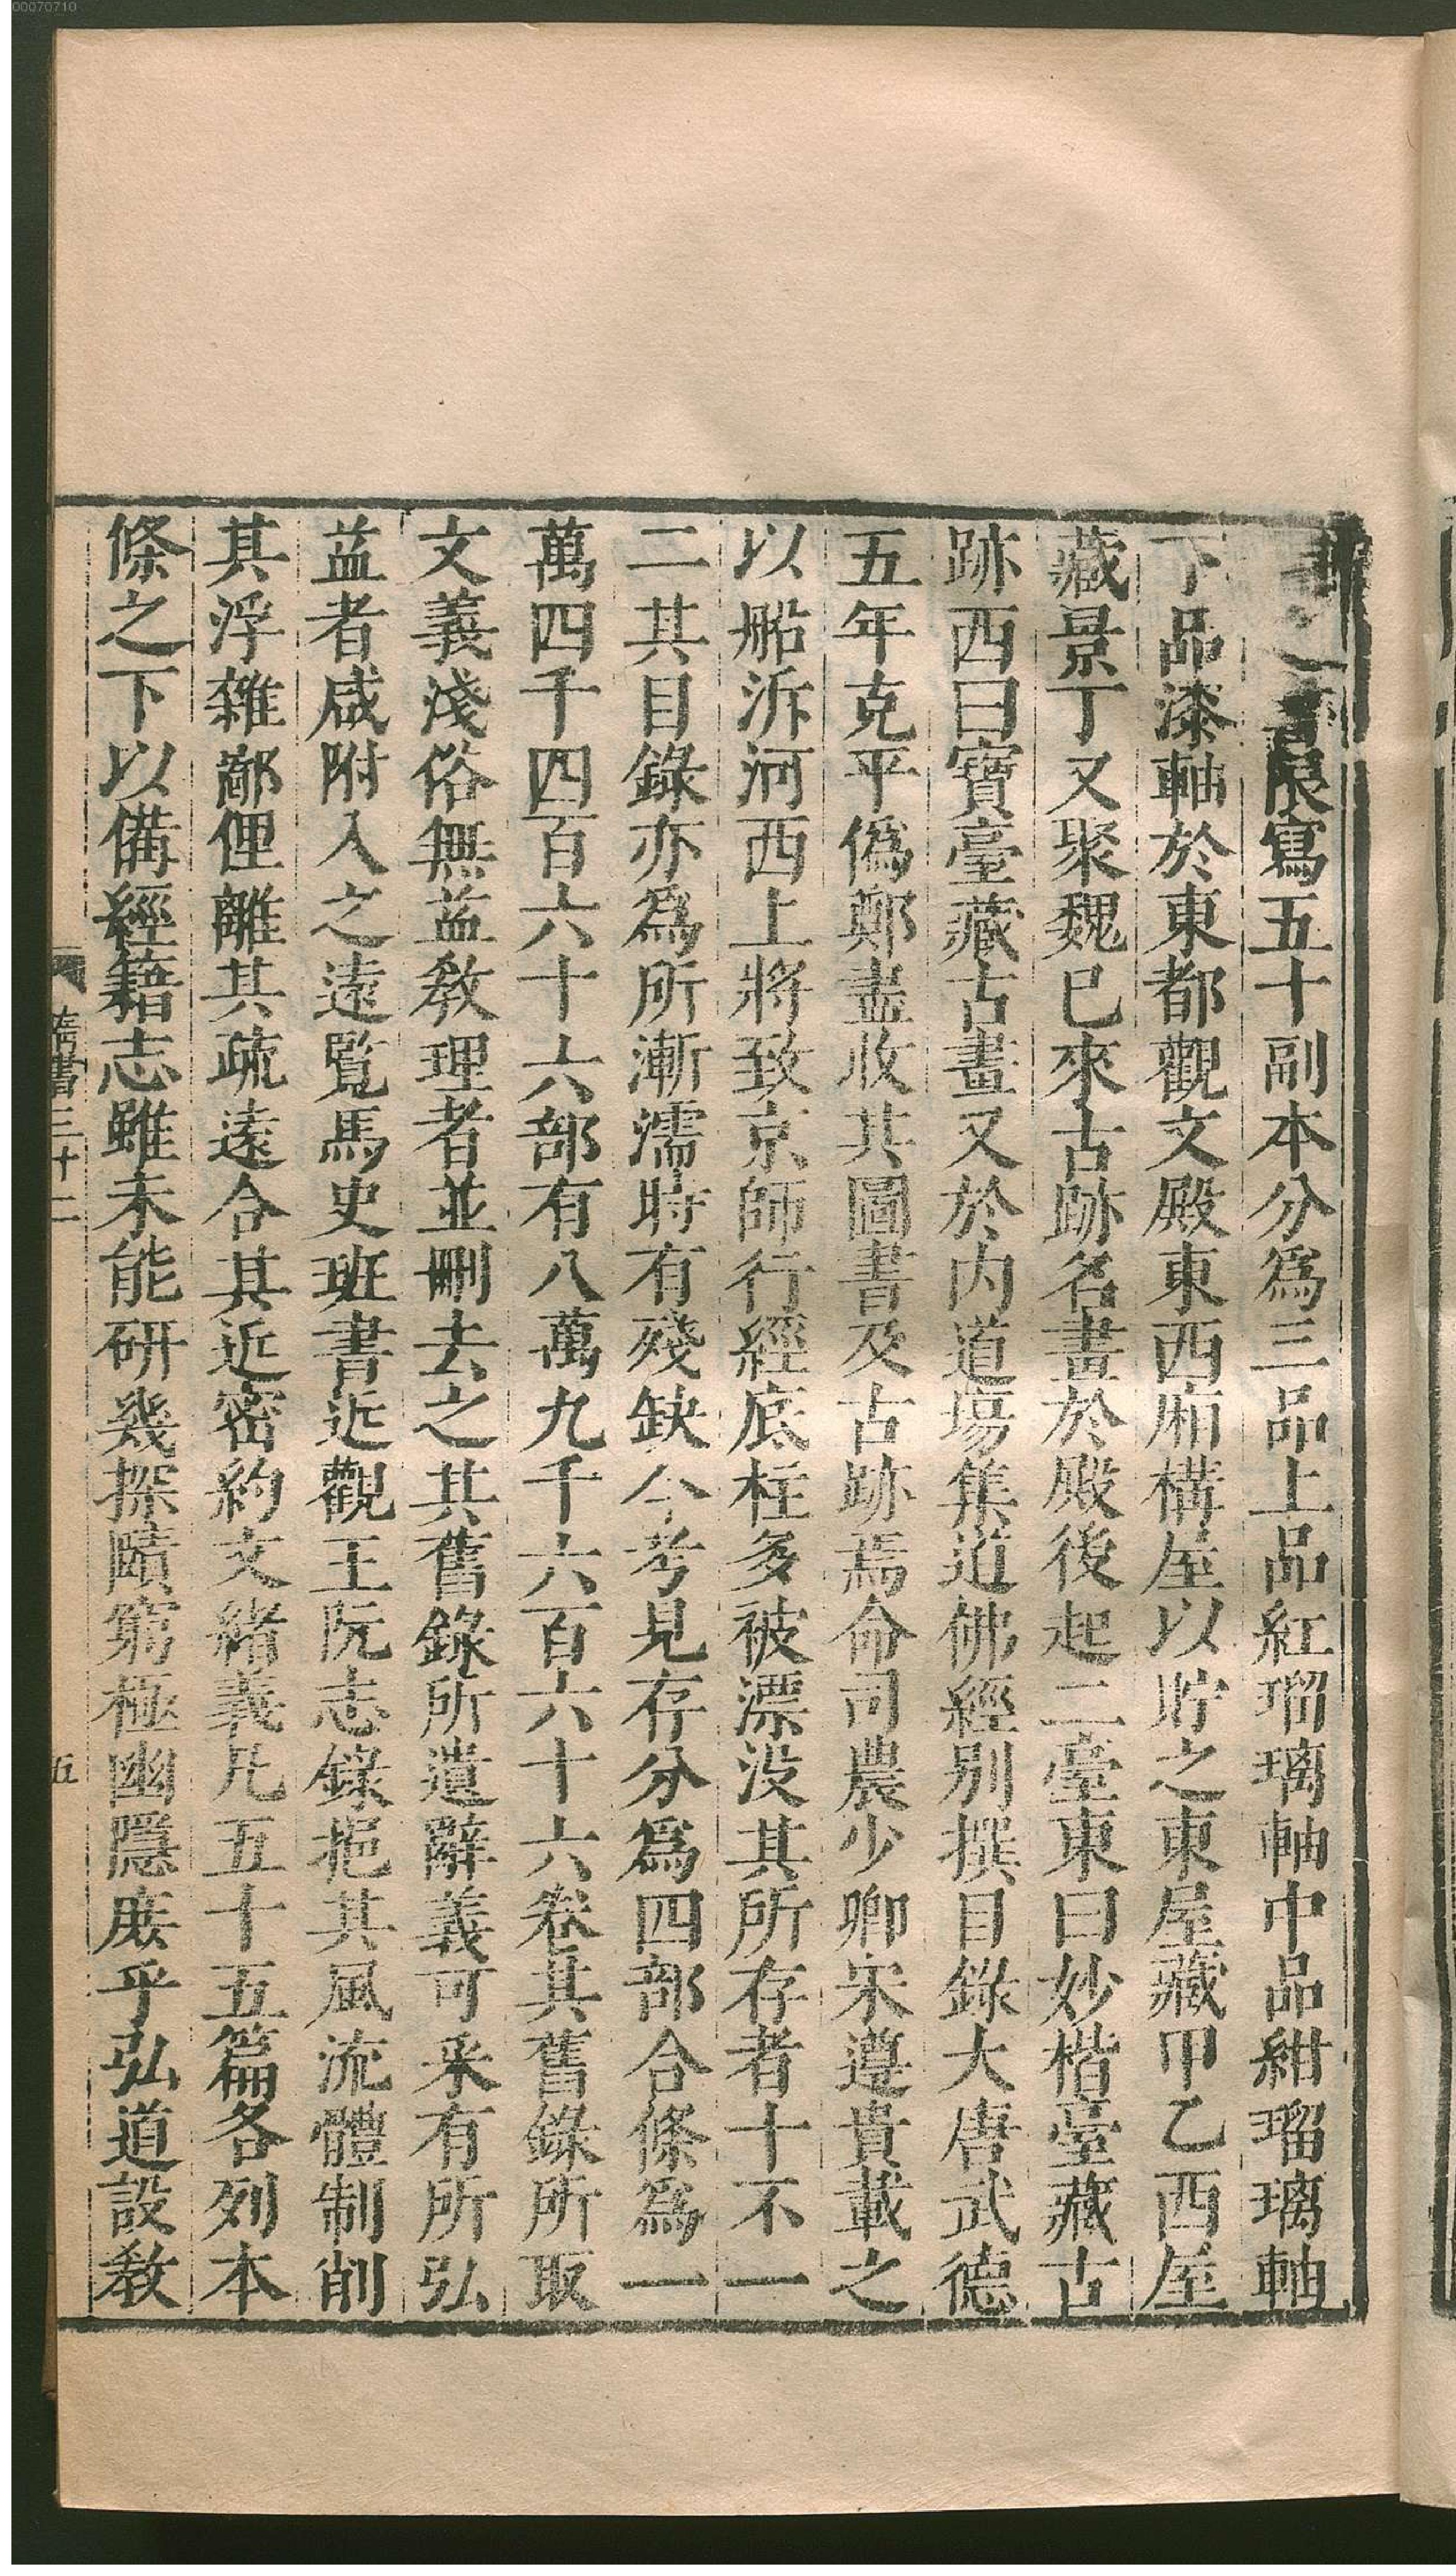 00070710
之書限寫五十副本分爲三品上品紅瑠璃軸中品紺瑠璃軸
下品漆軸於東都觀文殿東西廂構屋以貯之東屋藏甲乙西屋
藏景丁又聚魏巳來古跡名畫於殿後起二臺東曰妙楷臺藏古
跡西曰寶臺藏古畫又於内道塲集道佛經別撰目錄大唐武德
五年克平僞鄭盡收其圖書及古跡焉命司農少卿宋遵貴載之
以船泝河西上將致京師行經底柱多被漂没其所存者十不一
二其目錄亦爲所漸濡時有殘缺今考見存分爲四部合條爲一
萬四千四百六十六部有八萬九千六百六十六卷其舊錄所取
文義淺俗無益教理者並刪去之其舊錄所遺辭義可采有所弘
益者咸附入之遠覽馬史班書近觀王阮志錄挹其風流體制削
其浮雜鄙俚離其疏遠合其近密約文緒義凡五十五篇各列本
條之下以備經籍志雖未能研幾探賾窮極幽隱庶乎弘道設教
隋書三十二
五